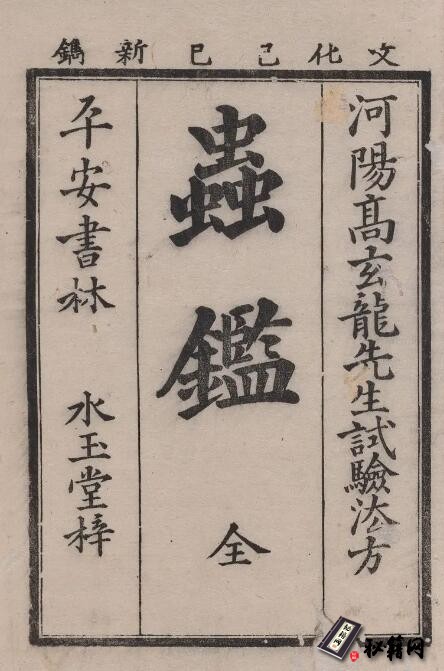 文化己巳新鐫
河陽髙玄龍先生試驗法方
蟲鑑 全
平安書林 水玉堂梓
秘籍网